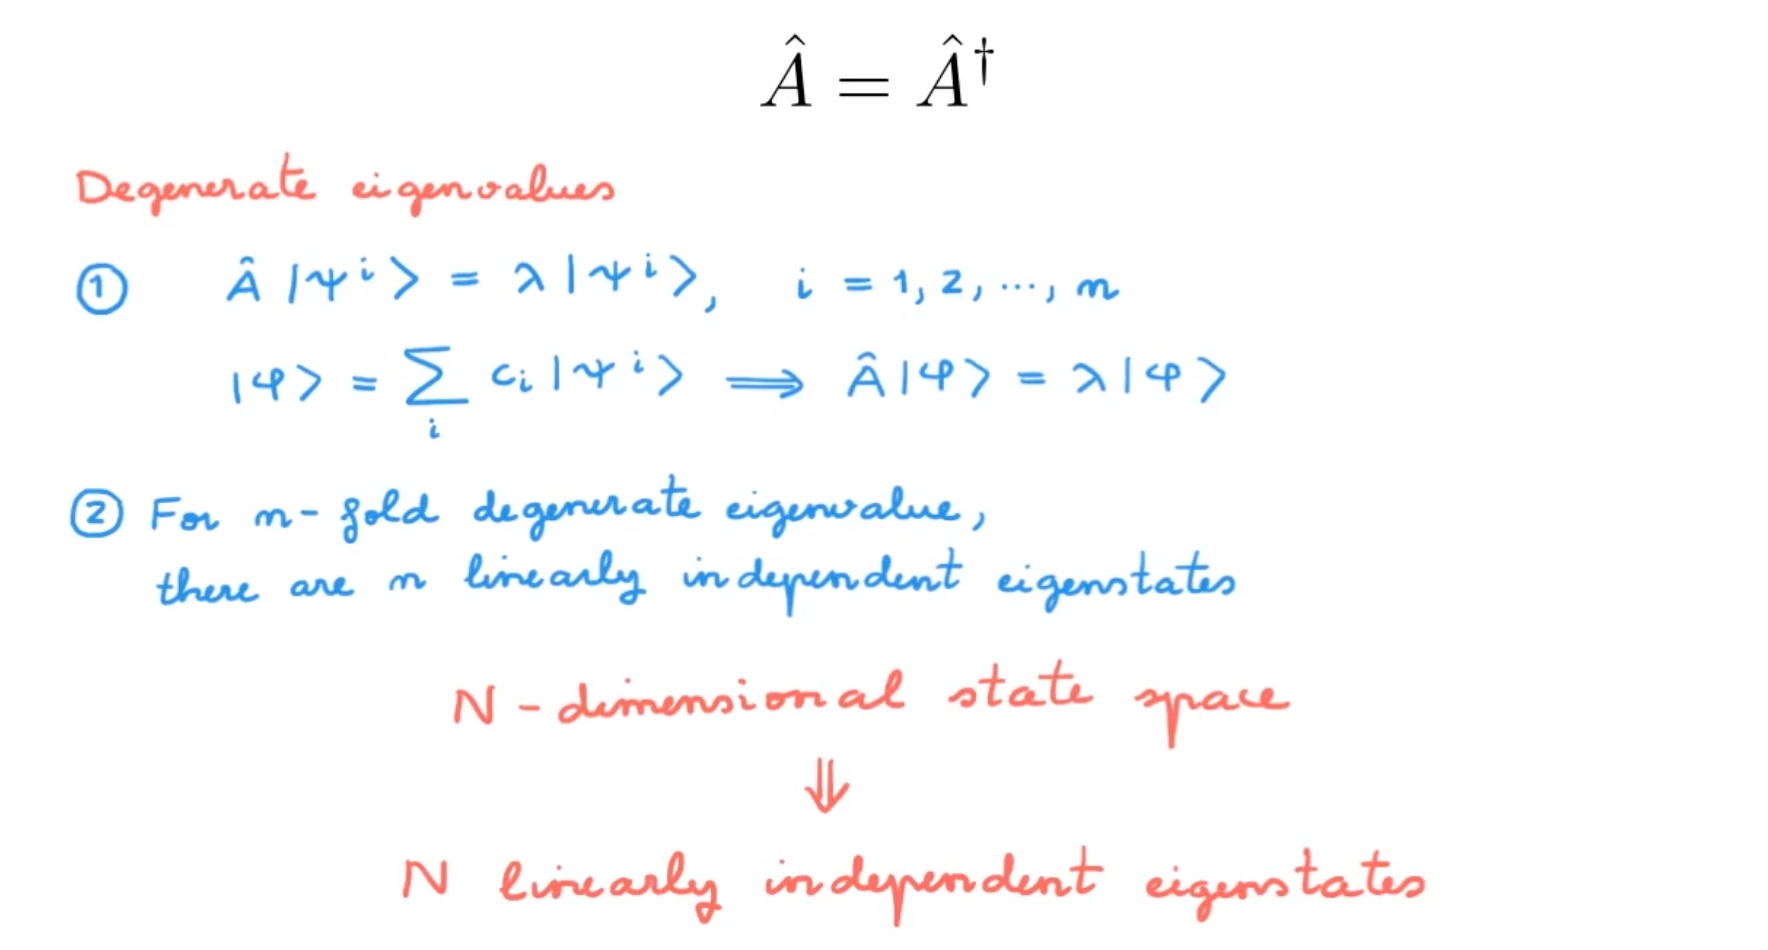 Â = Â†
Degenerate eigenvalues
① Â |ψⁱ⟩ = λ |ψⁱ⟩, i = 1, 2, ..., n
|φ⟩ = ∑ᵢ cᵢ |ψⁱ⟩ ⟹ Â |φ⟩ = λ |φ⟩
② For n-fold degenerate eigenvalue,
there are n linearly independent eigenstates
N-dimensional state space
⇓
N linearly independent eigenstates